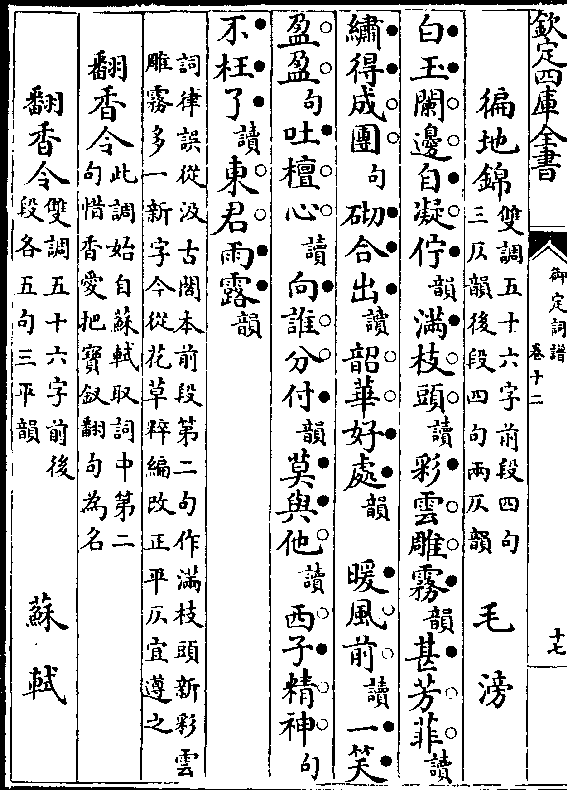 欽定四庫全書
御定詞譜
卷十二
十七
徧地錦 雙調五十六字前段四句
三仄韻後段四句兩仄韻 毛滂
白玉闌邊自凝佇韻滿枝頭讀彩雲雕霧韻甚芳菲讀
繡得成團句砌合出讀韶華好處韻 暖風前讀一笑
盈盈句吐檀心讀向誰分付韻莫與他讀西子精神句
不枉了讀東君雨露韻
詞律誤從汲古閣本前段第二句作滿枝頭新彩雲
雕霧多一新字今從花草粹編改正平仄宜遵之
翻香令 此調始自蘇軾取詞中第二
句惜香愛把寶釵翻句為名
翻香令 雙調五十六字前後
段各五句三平韻 蘇軾